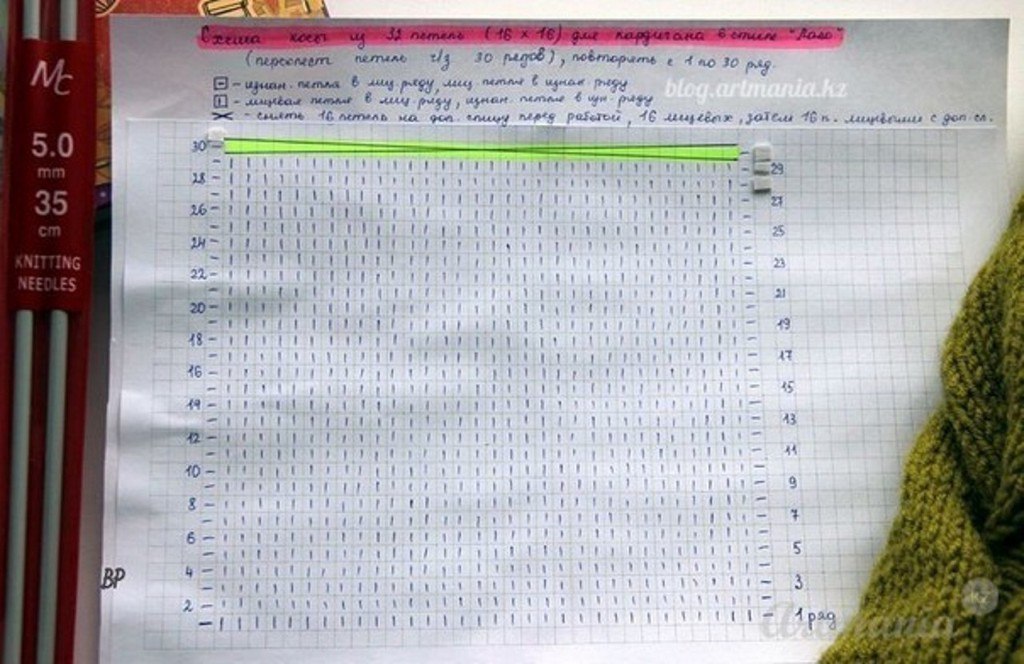 Схема косы из 32 петель (16 x 16) для кардигана в стиле "Лало"
(перехлест петель ч/з 30 рядов), повторять с 1 по 30 ряд.
- изнан. петля в лиц. ряду, лиц. петля в изнан. ряду
- лицевая петля в лиц. ряду, изнан. петля в изн. ряду
blog.artmania.kz
- снять 16 петель на доп. спицу перед работой, 16 лицевых, затем 16 п. лицевыми с доп. сп.
MC
5.0
mm
35
cm
KNITTING
NEEDLES
30
29
28
27
26
25
24
23
22
21
20
19
18
17
16
15
14
13
12
11
10
9
8
7
6
5
4
3
ВР
2
1 ряд
Artmania
kz